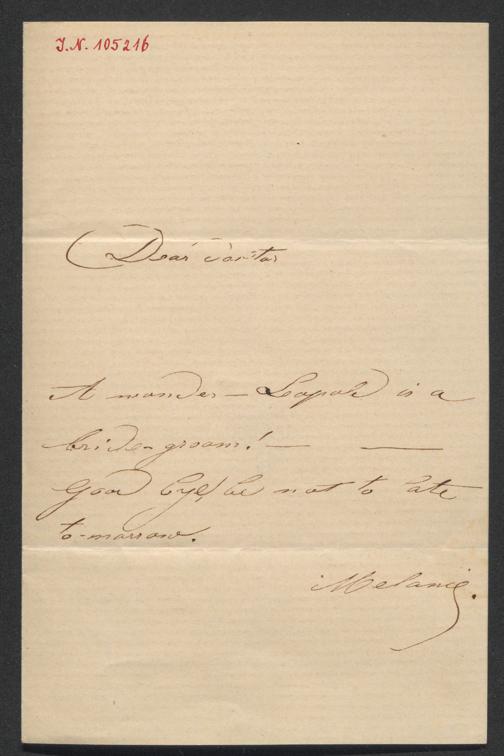 I.N. 105216
Dear
A wonder – Leopold is a
bride-groom! — —
Good bye, be not to late
to-morrow.
Melanie.